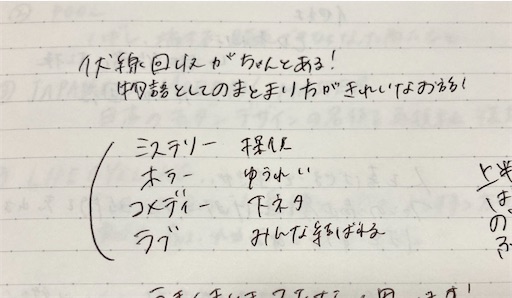 伏線回収がちゃんとある!
物語としてのまとまり方がきれいなお話!
ミステリー 探偵
ホラー ゆうれい
コメディー 下ネタ
ラブ みんな結ばれる